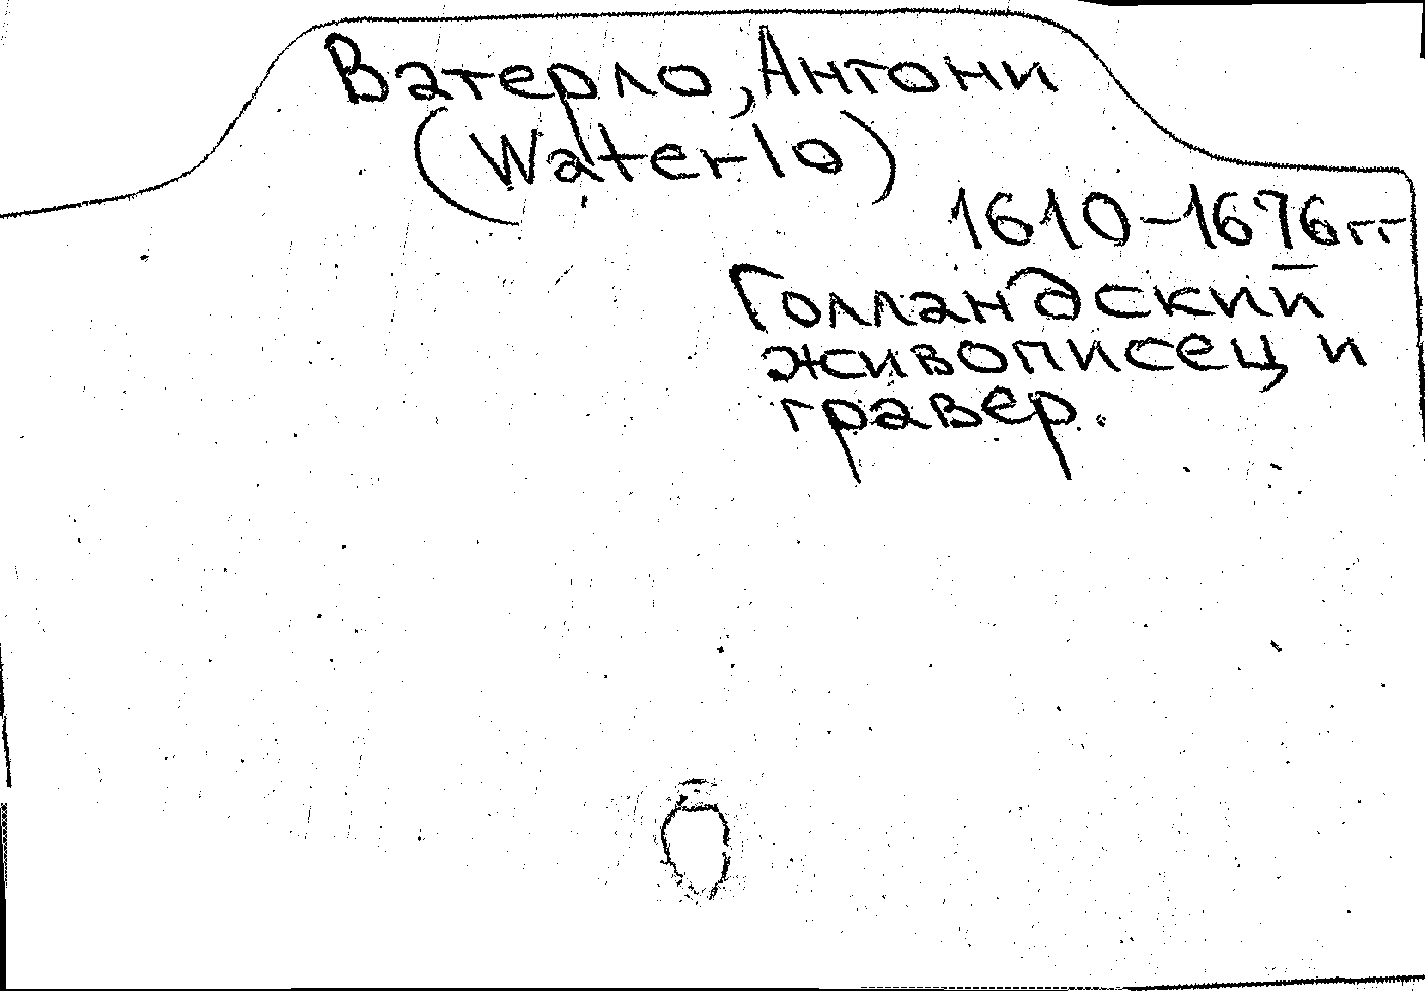 Ватерло, Антони
(Waterlo)
1610-1676гг
Голландский
живописец и
гравер.